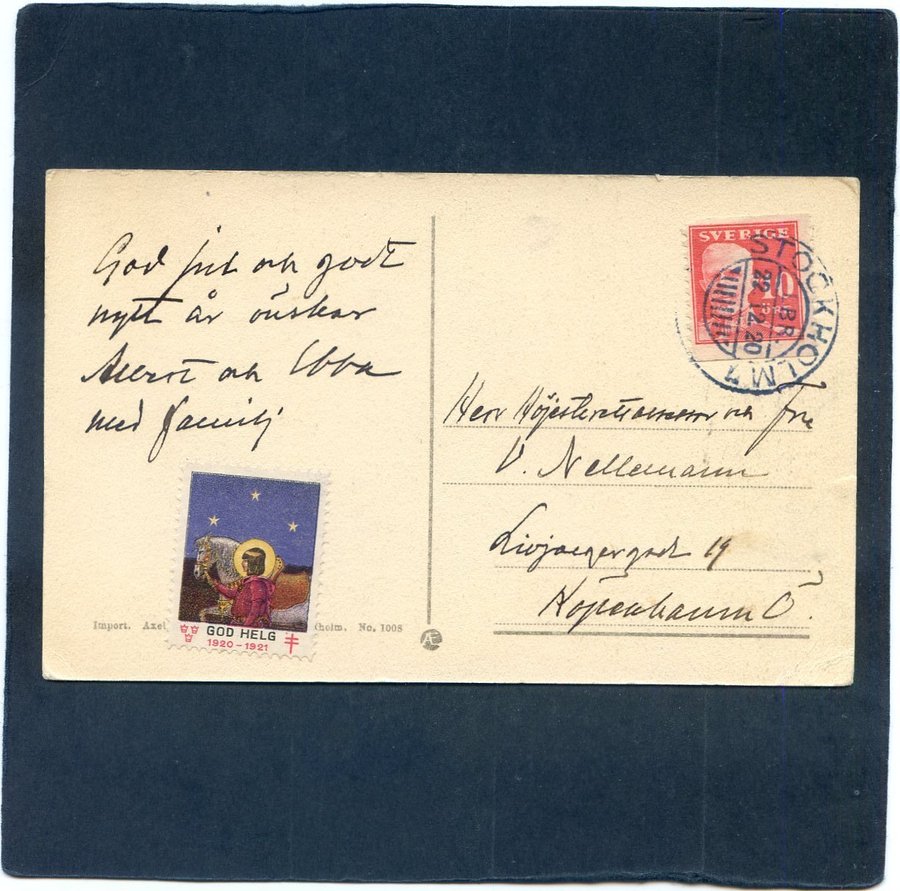 God jul och godt
nytt år önskar
och Ebba
med familj
Import. Axel
holm. No. 1008
GOD HELG
1920-1921
SVERIGE
10
ÖRE
STOCKHOLM 1
BR.
22.12.20
Herr Höjesteretsassessor och Fru
V. Nellemann
Livjaegergade 19
Köpenhamn Ö.
Æ